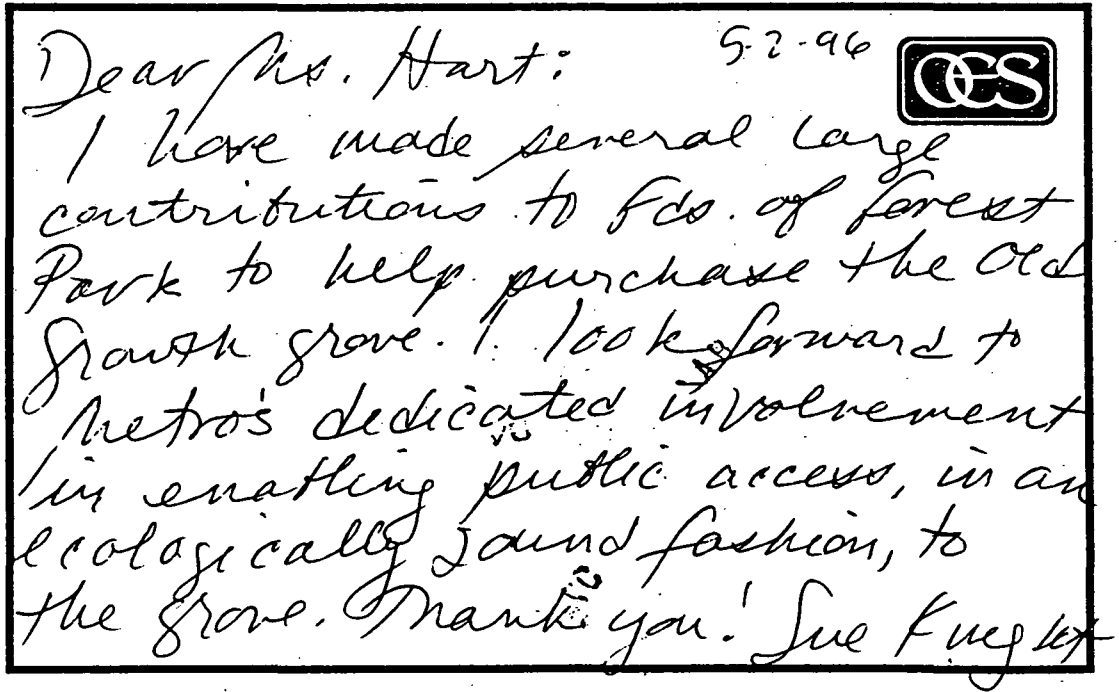 5-2-96
OES
Dear Ms. Hart:
I have made several large
contributions to Fds. of Forest
Park to help purchase the Old
Growth grove. I look forward to
Metro's dedicated involvement
in enabling public access, in an
ecologically sound fashion, to
the grove. Thank you! Sue